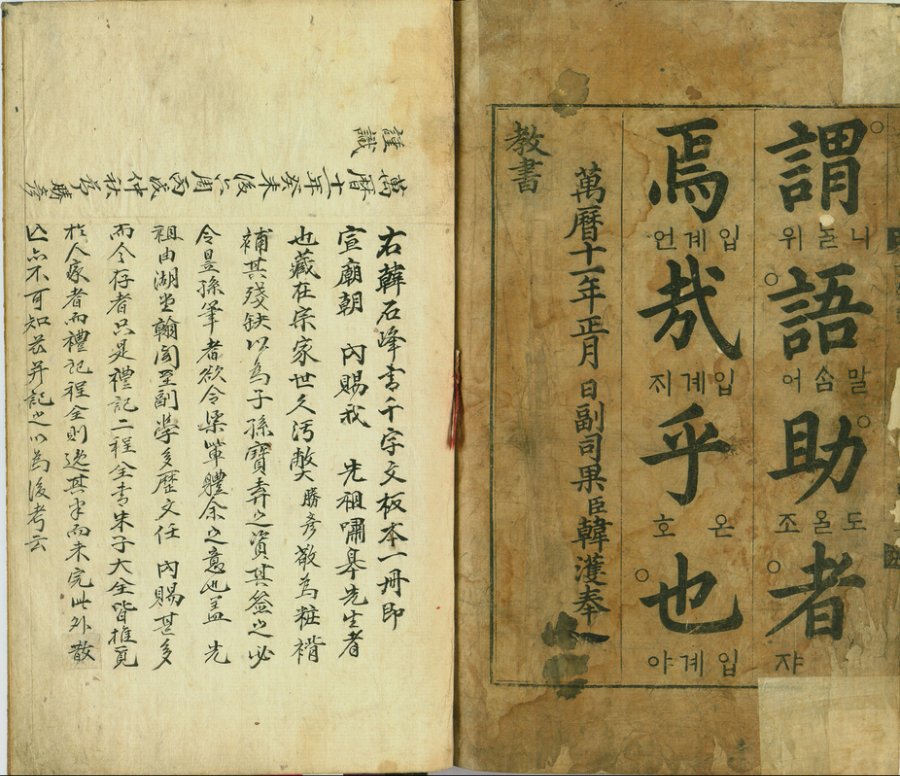 謂 니ᄂᆞᆯ 위
語 말ᄉᆞᆷ 어
助 도올 조
者 쟈
焉 입계 언
哉 입계 ᄌᆡ
乎 온 호
也 입계 야
萬曆十一年正月 日副司果臣韓濩奉
教書
右韓石峰書千字文板本一冊即
宣廟朝 內賜我 先祖嘯皐先生者
也藏在宗家世久污弊勝彦敬為粧褙
補其殘缺以為子孫寶弆之資其簽之必
令昱孫筆者欲令渠軰體余之意也盖 先
祖由湖堂翰閣至副學多歷文任 內賜甚多
而今存者只是禮記二程全書朱子大全皆推覓
於人家者而禮記程全則逸其半而未完此外散
亡亦不可知茲并記之以為後考云
萬曆十一年癸未後六周丙辰仲秋勝彦
謹識